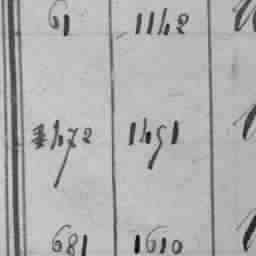 61 1142
472 1491
681 1610